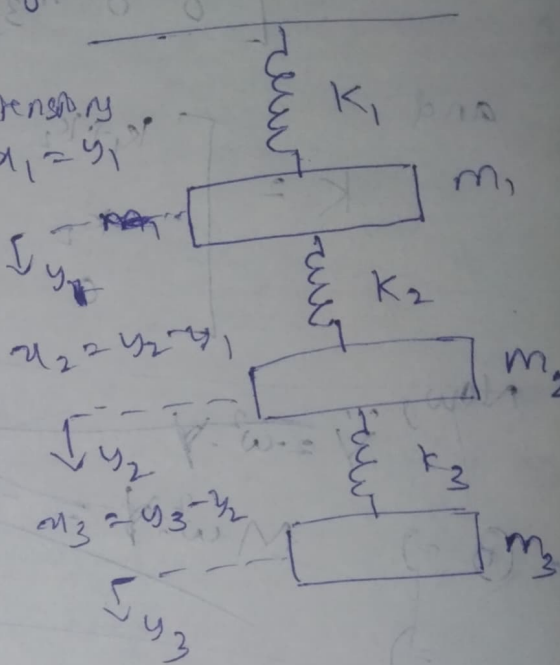 K₁
x₁ = y₁
m₁
y₁
K₂
x₂ = y₂ - y₁
m₂
y₂
K₃
x₃ = y₃ - y₂
m₃
y₃